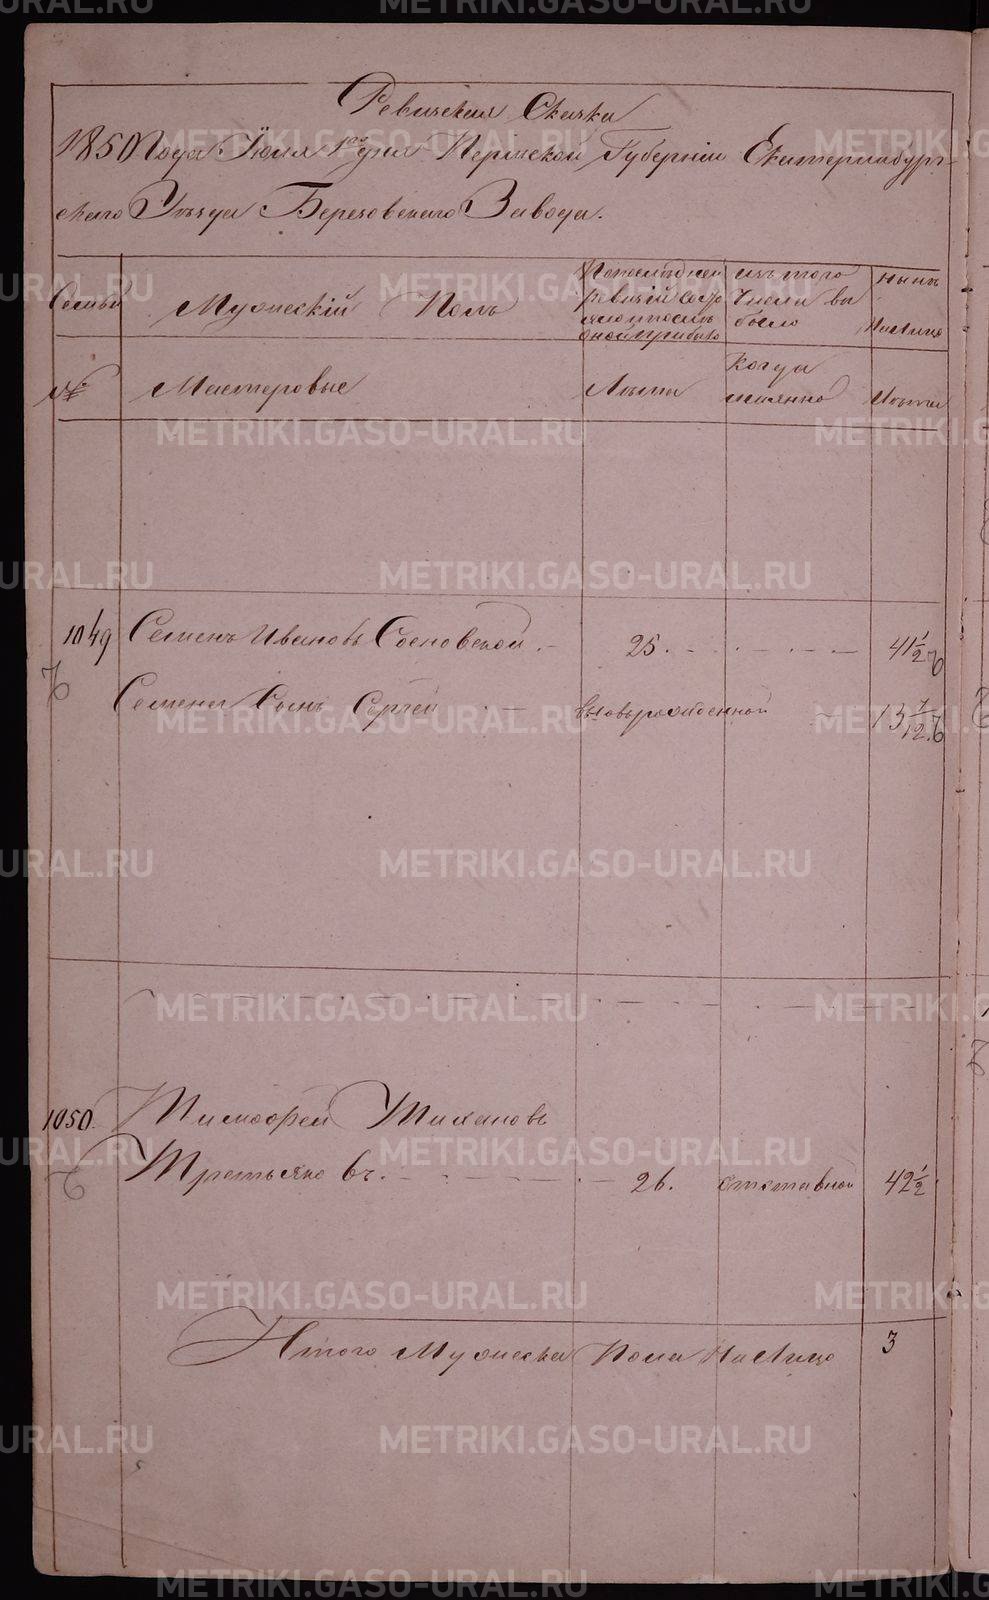 Ревизская Сказка
1850 Года Июля 1го дня Пермской Губернии Екатеринбург-
скаго Уезда Березовскаго Завода.
Семьи
Мужескiй Полъ
По последней ревизiи состояло и после оной прибыло
изъ того числа выбыло
ныне на лицо
№
Мастеровые
Лета
когда именно
Лета
1049 Семенъ Ивановъ Сосновской 25. 41 1/2
Семена Сынъ Сергей новорожденной 13 1/12
1050. Тимофей
Третьяковъ. 26. отставной 42 1/2
Итого Мужеска Пола На Лицо 3
METRIKI.GASO-URAL.RU